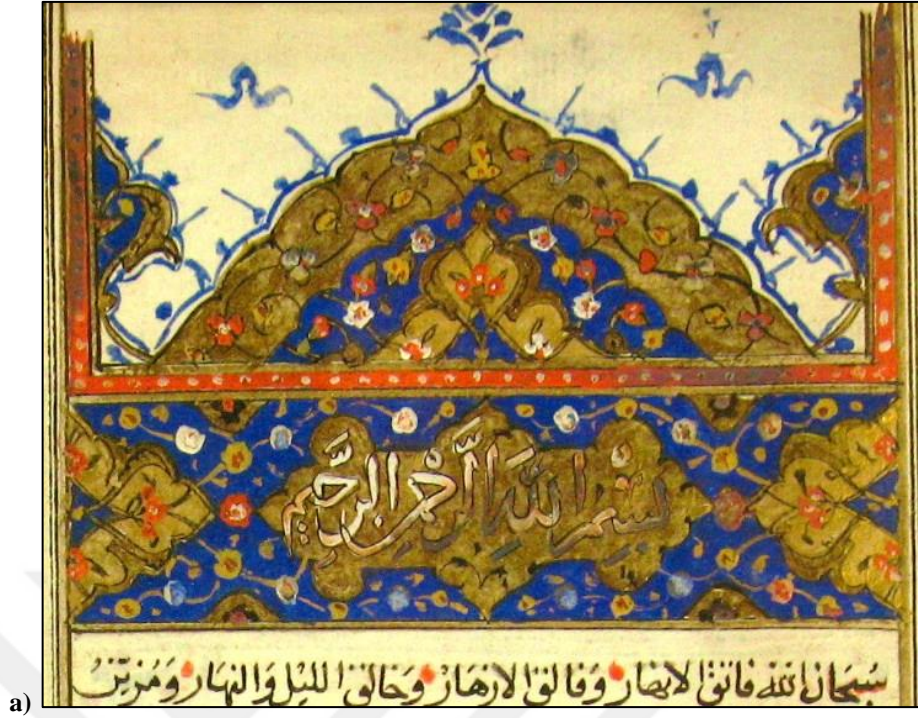 بِسْمِ اللهِ الرَّحْمنِ الرَّحِيمِ
سُبْحَانَ الله فاتقُ وَفَالقُ الازهَارْ وَخَالقُ الليْلِ وَالنهَارْ وَمُزَيّنُ
a)